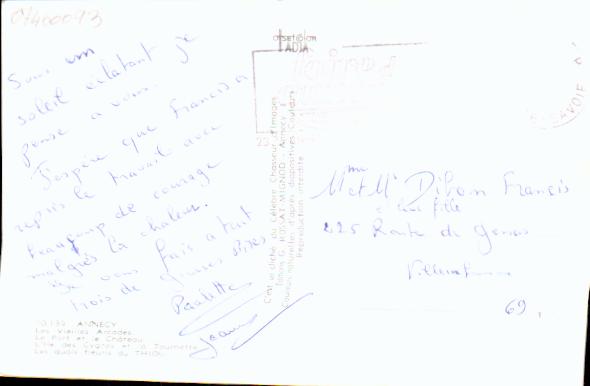 01400093
Sous un
soleil éclatant je
pense a vous.
J'espère que Francis a
repris le travail avec
beaucoup de courage
malgrés la chaleur.
Je vous fais a tout
trois de grosses bises
Paulette
10.139 ANNECY
Les Vieilles Arcades
Le Port et le Château
L'Ile des Cygnes et la Tournette
Les quais fleuris du THIOU
C'est un cliché du Célèbre Chasseur d'Images
Editions G. ROSSAT-MIGNOD - Annecy
Couleurs naturelles d'après diapositives Couleurs
Reproduction interdite
ADIA
SAVOIE
Mme et Mr Francis
& leur fille
225 Route de Genas
Villeurbanne
69